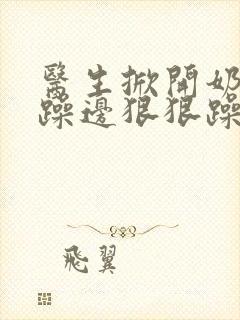 醫生掀開奶
躁邊狠狠躁
飛翼